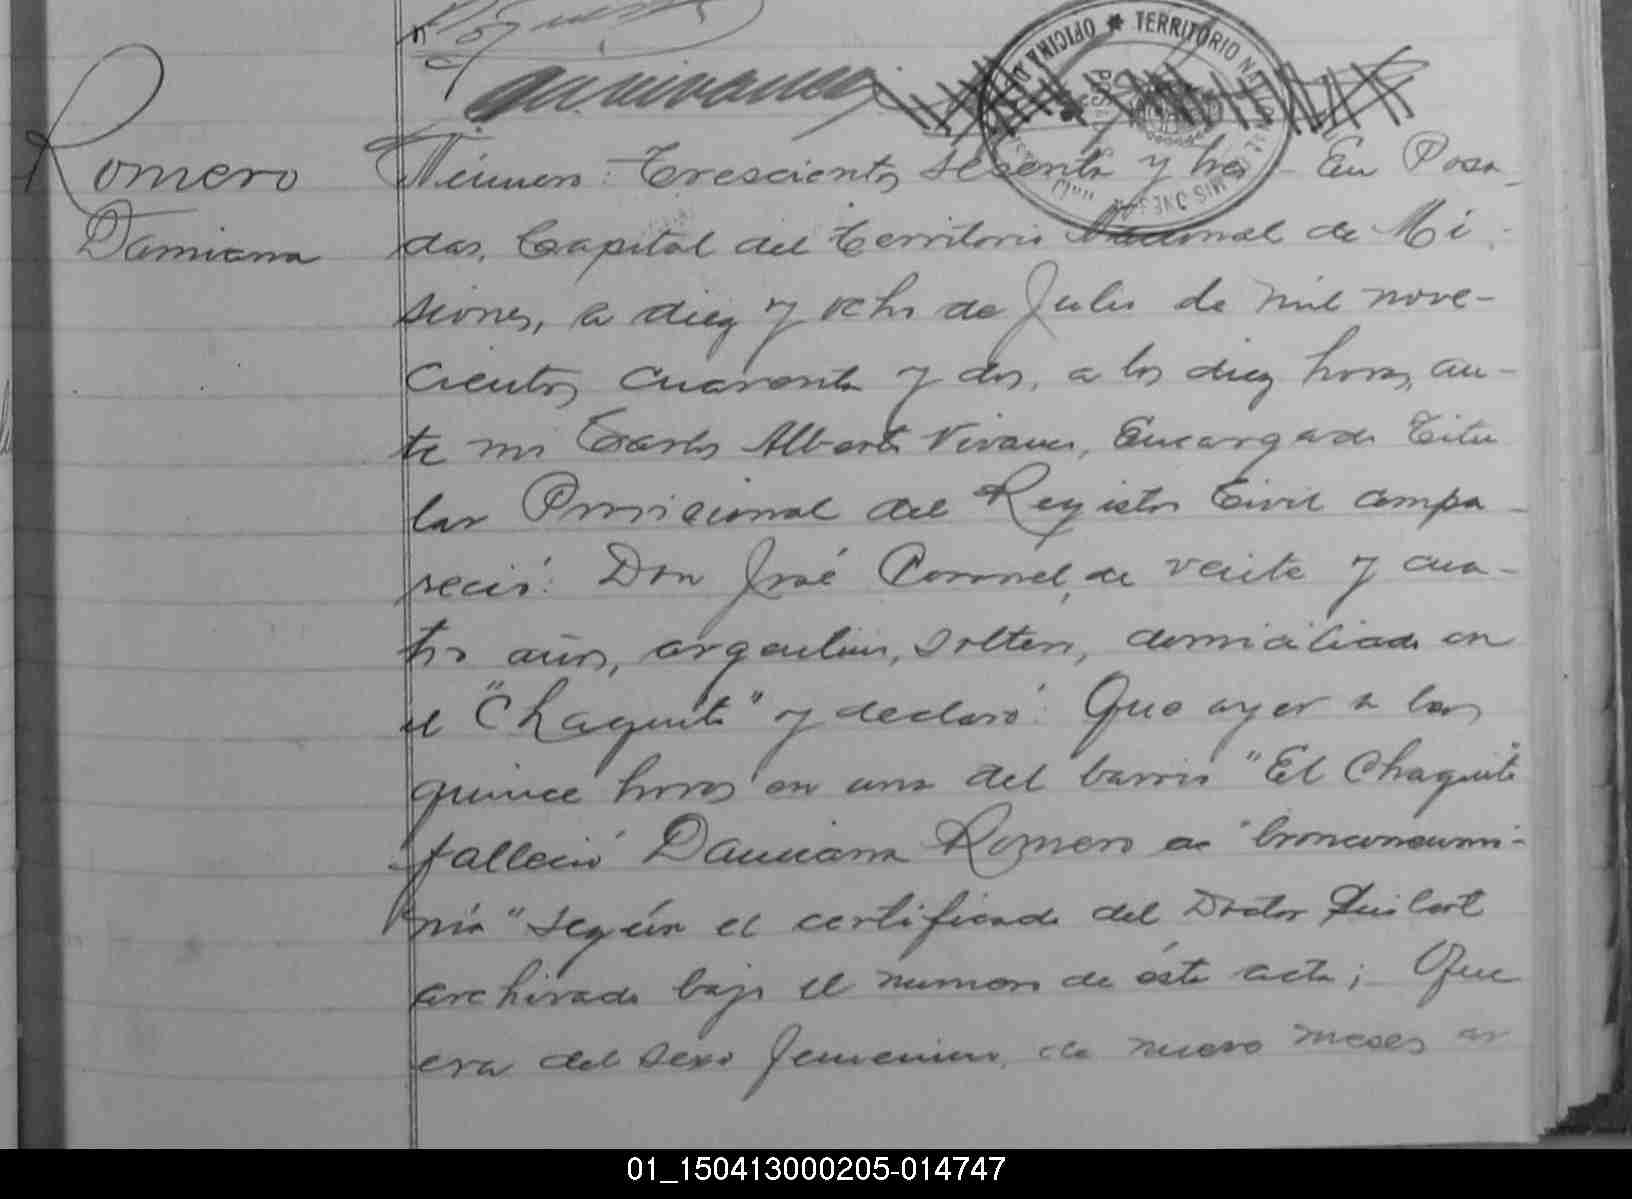 Romero
Damiana
Número: Trescientos sesenta y tres - En Posa-
das, Capital del Territorio Nacional de Mi-
siones, a diez y ocho de Julio de mil nove-
cientos cuarenta y dos, a las diez horas, an-
te mi Carlos Alberto Vivanco, Encargado Titu
lar Provisional del Registro Civil compa-
reció: Don José Coronel, de veinte y cua-
tro años, argentino, soltero, domiciliado en
el "Chaquito" y declaró: Que ayer a las
quince horas en una del barrio "El Chaquito"
falleció Damiana Romero de "bronconeumo-
nía" según el certificado del Doctor
archivado bajo el numero de ésta acta; Que
era del sexo femenino, de nueve meses de
OFICINA
TERRITORIO
MISIONES
01_150413000205-014747